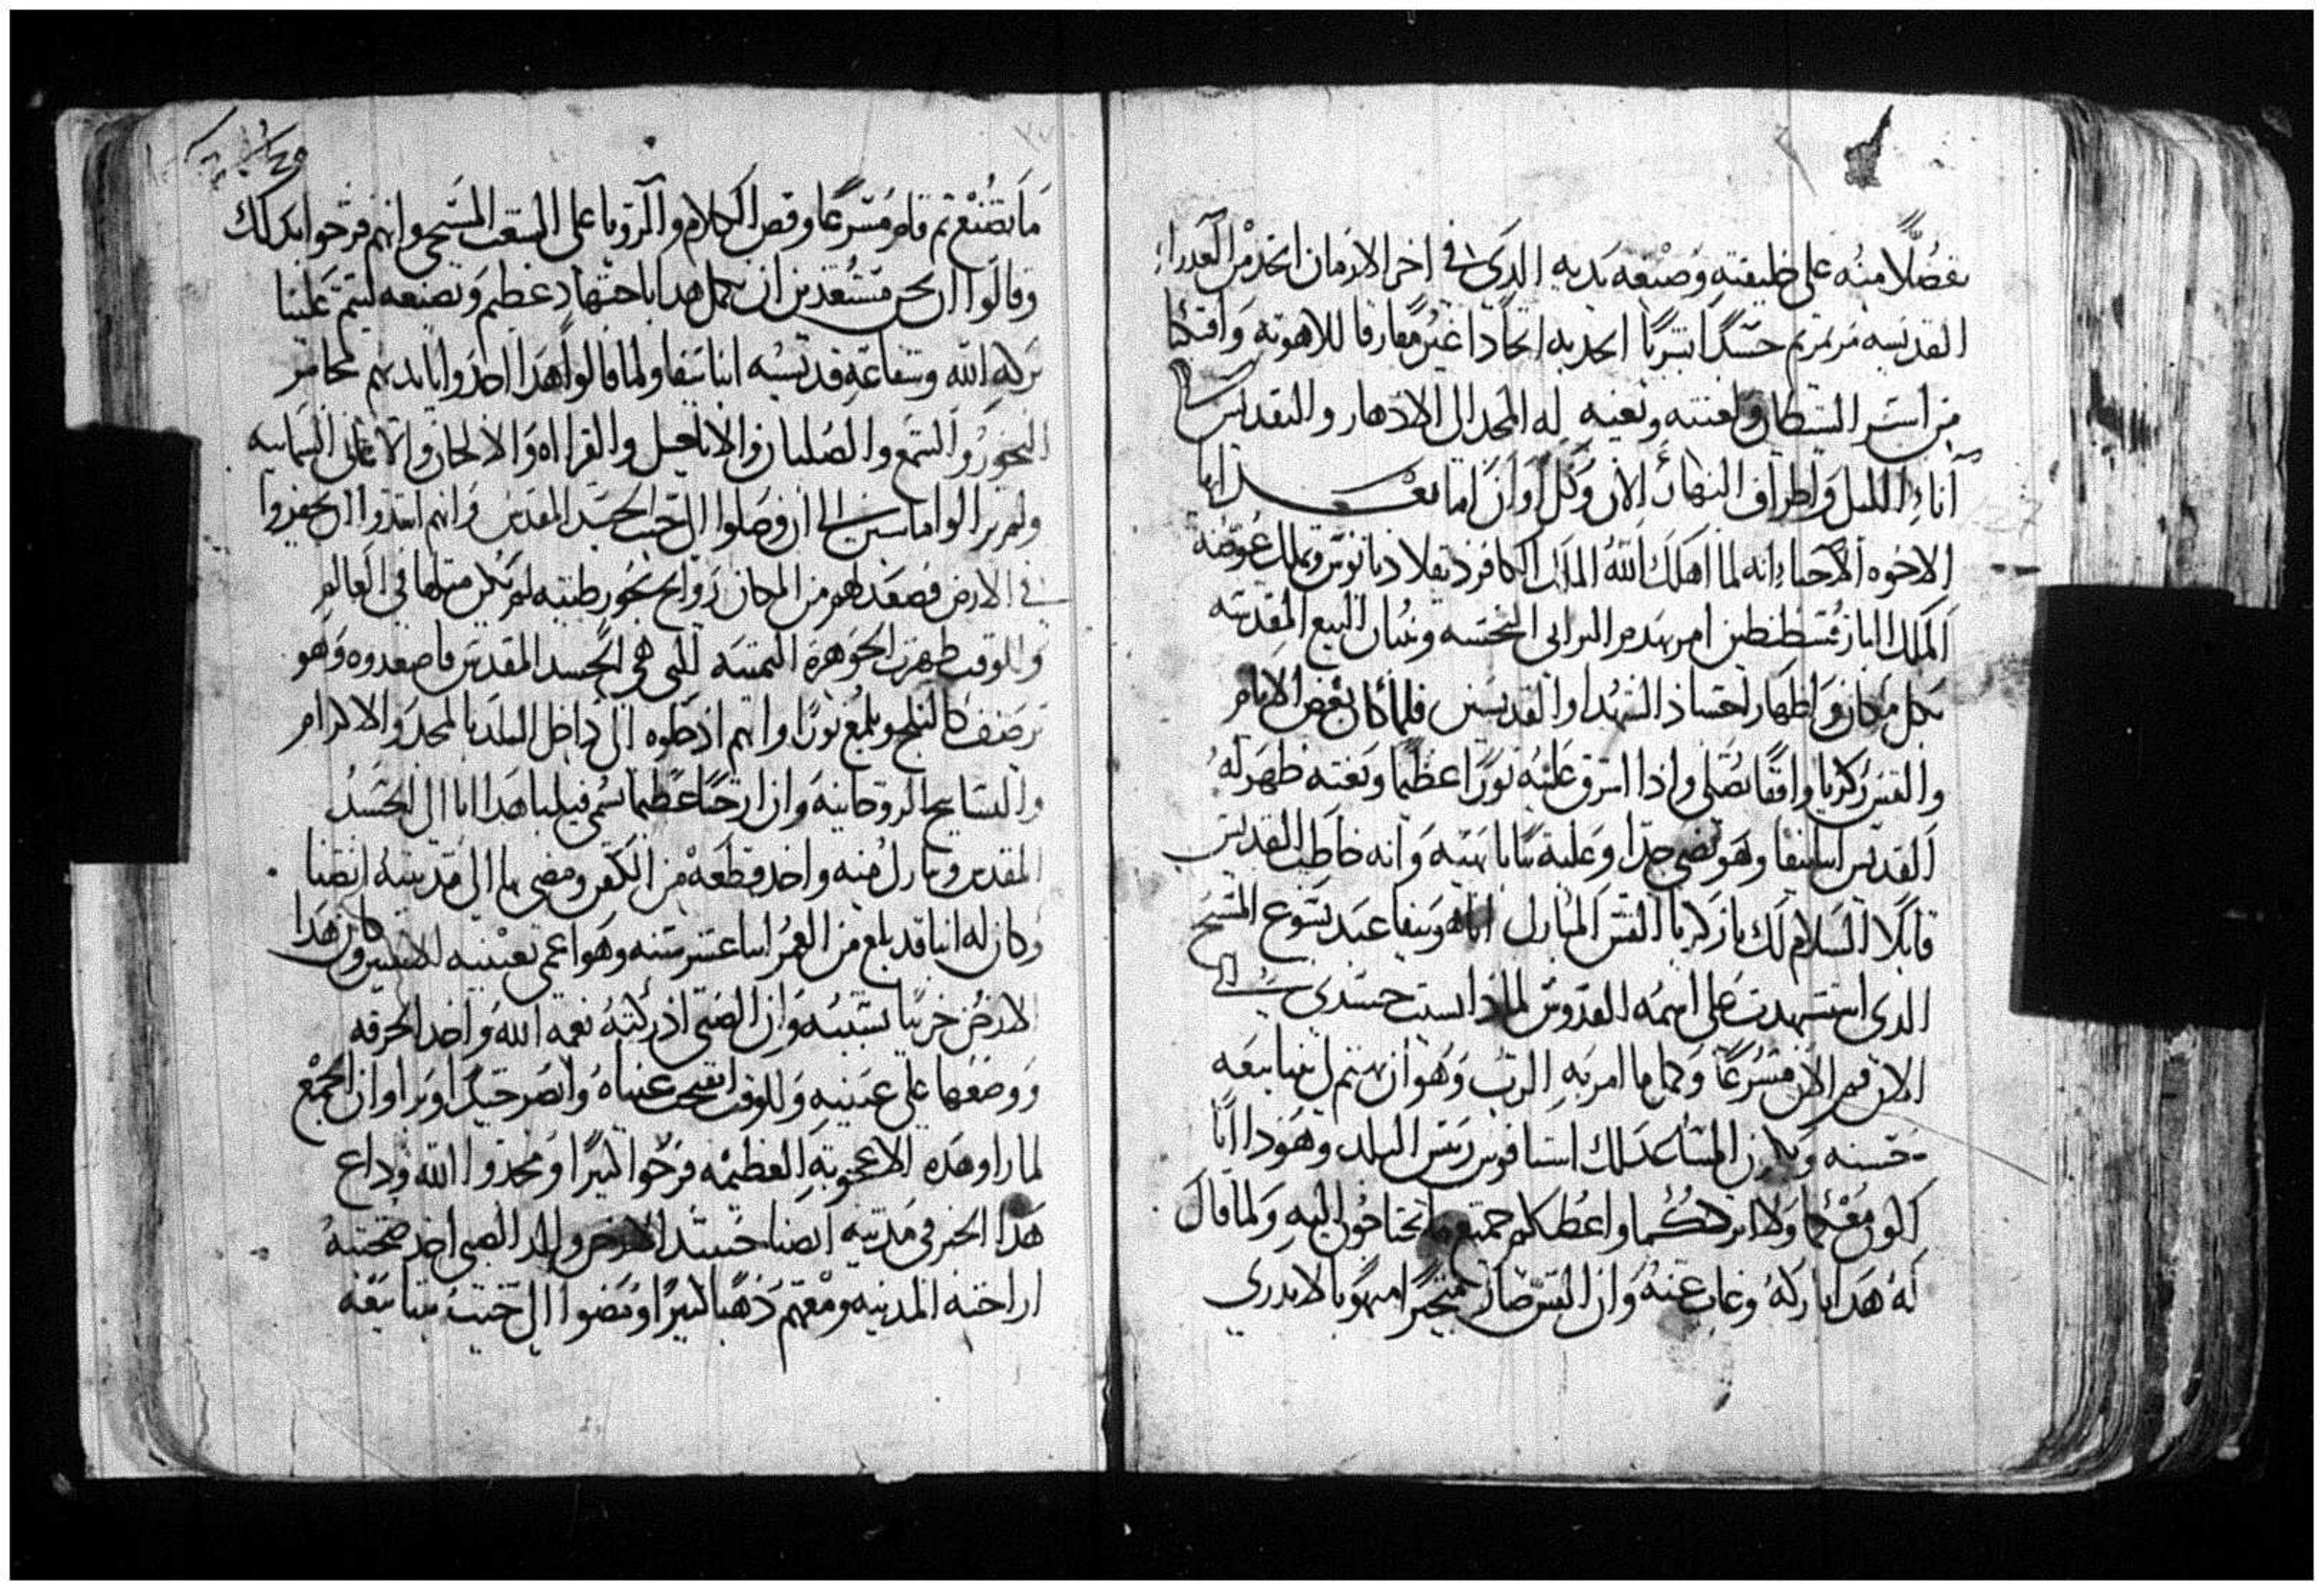 تفضلًا منه على خليقته وصنعه يديه الدى فى اخر الازمان اتخد من العدراء
القديسه مرتمريم جسدًا بشريًا اتحد به اتحادا غير مفارقا للاهوته وافتكنا
من اسر الشيطان ولعنته وبغيه له المجد الى الادهار والتقديس
آناء الليل واطراف النهار الان وكل اوان اما بعد ايها
الاخوه الاحباء انه لما اهلك الله الملك الكافر دقلاديانوس وتملك عوضه
الملك البار قسطنطين امر بهدم البرابى النجسه وبنيان البيع المقدسه
بكل مكان واظهار اجساد الشهدا والقديسين فلما كان بعض الايام
والقس زكريا واقفًا يصلى واذا اشرق عليه نورًا عظيمًا وبغته ظهر له
القديس ابا بيفا وهو يضى جدًا وعليه تيابا بهيه وانه خاطب القديس
قايلًا السلام لك يا زكريا القس المبارك انا هو بيفا عبد يسوع المسيح
الدى استشهدت على اسمه القدوس لمادا نسيت جسدى الى
الان قم الان مسرعًا وكما امر به الرب وهو ان يهتم لى ببنا بيعه
حسنه ويكون المساعد لك رييس البلد وهودا انا
اكون معكما ولا اترككما واعطيكم جميع ما تحتاجون اليه ولما قال
له هدا باركه وغاب عنه وان القس صار متحيرًا مبهوتا لا يدرى
ما يصنع تم قام مسرعًا وقص الكلام والرويا على الشعب المسيحى وانهم فرحوا بدلك
وقالوا ان نحن مستعدين ان نعمل هدا باجتهاد عظيم ونصنعه ليتم علينا
بركه الله وشفاعه قديسيه انبا بيفا ولما قالوا هدا اخدوا بايديهم مجامر
البخور والشمع والصلبان والاناجيل والقراه والالحان والاغانى السمايبه
ولم يزالوا ماشين الى ان وصلوا الى حيت الجسد المقدس وانهم ابتدوا ان يحفروا
فى الارض فصعد لهم من المكان روايح بخور طيبه لم يكن متلها فى العالم
وللوقت ظهرت الجوهره التمينه التى هى الجسد المقدس فاصعدوه وهو
ابيض كالتلج ويلمع نورًا وانهم ادخلوه الى داخل البلد بالمجد والاكرام
والتسابيح الروحانيه وان ارخنًا عظيما هدا اتا الى الجسد
المقدس وتبارك منه واخد قطعه من الكفن ومضى بها الى مدينه انصنا
وكان له ابنا قد بلغ من العمر اتنا عشر سنه وهو اعمى بعينيه الاتنتين وكان هدا
الارخن حزينا بسببه وان الصبى ادركته نعمه الله واخد الخرقه
ووضعها على عينيه وللوقت انفتحت عيناه وابصر جيدًا وبرا وان الجمع
لما راوا هده الاعجوبه العظيمه فرحوا كتيرًا ومجدوا الله وداع
هدا الخبر فى مدينه انصنا حينيد الارخن والد الصبى اخد صحبته
اراخنه المدينه ومعهم دهبا كتيرًا ومضوا الى حيت بنا بيعه